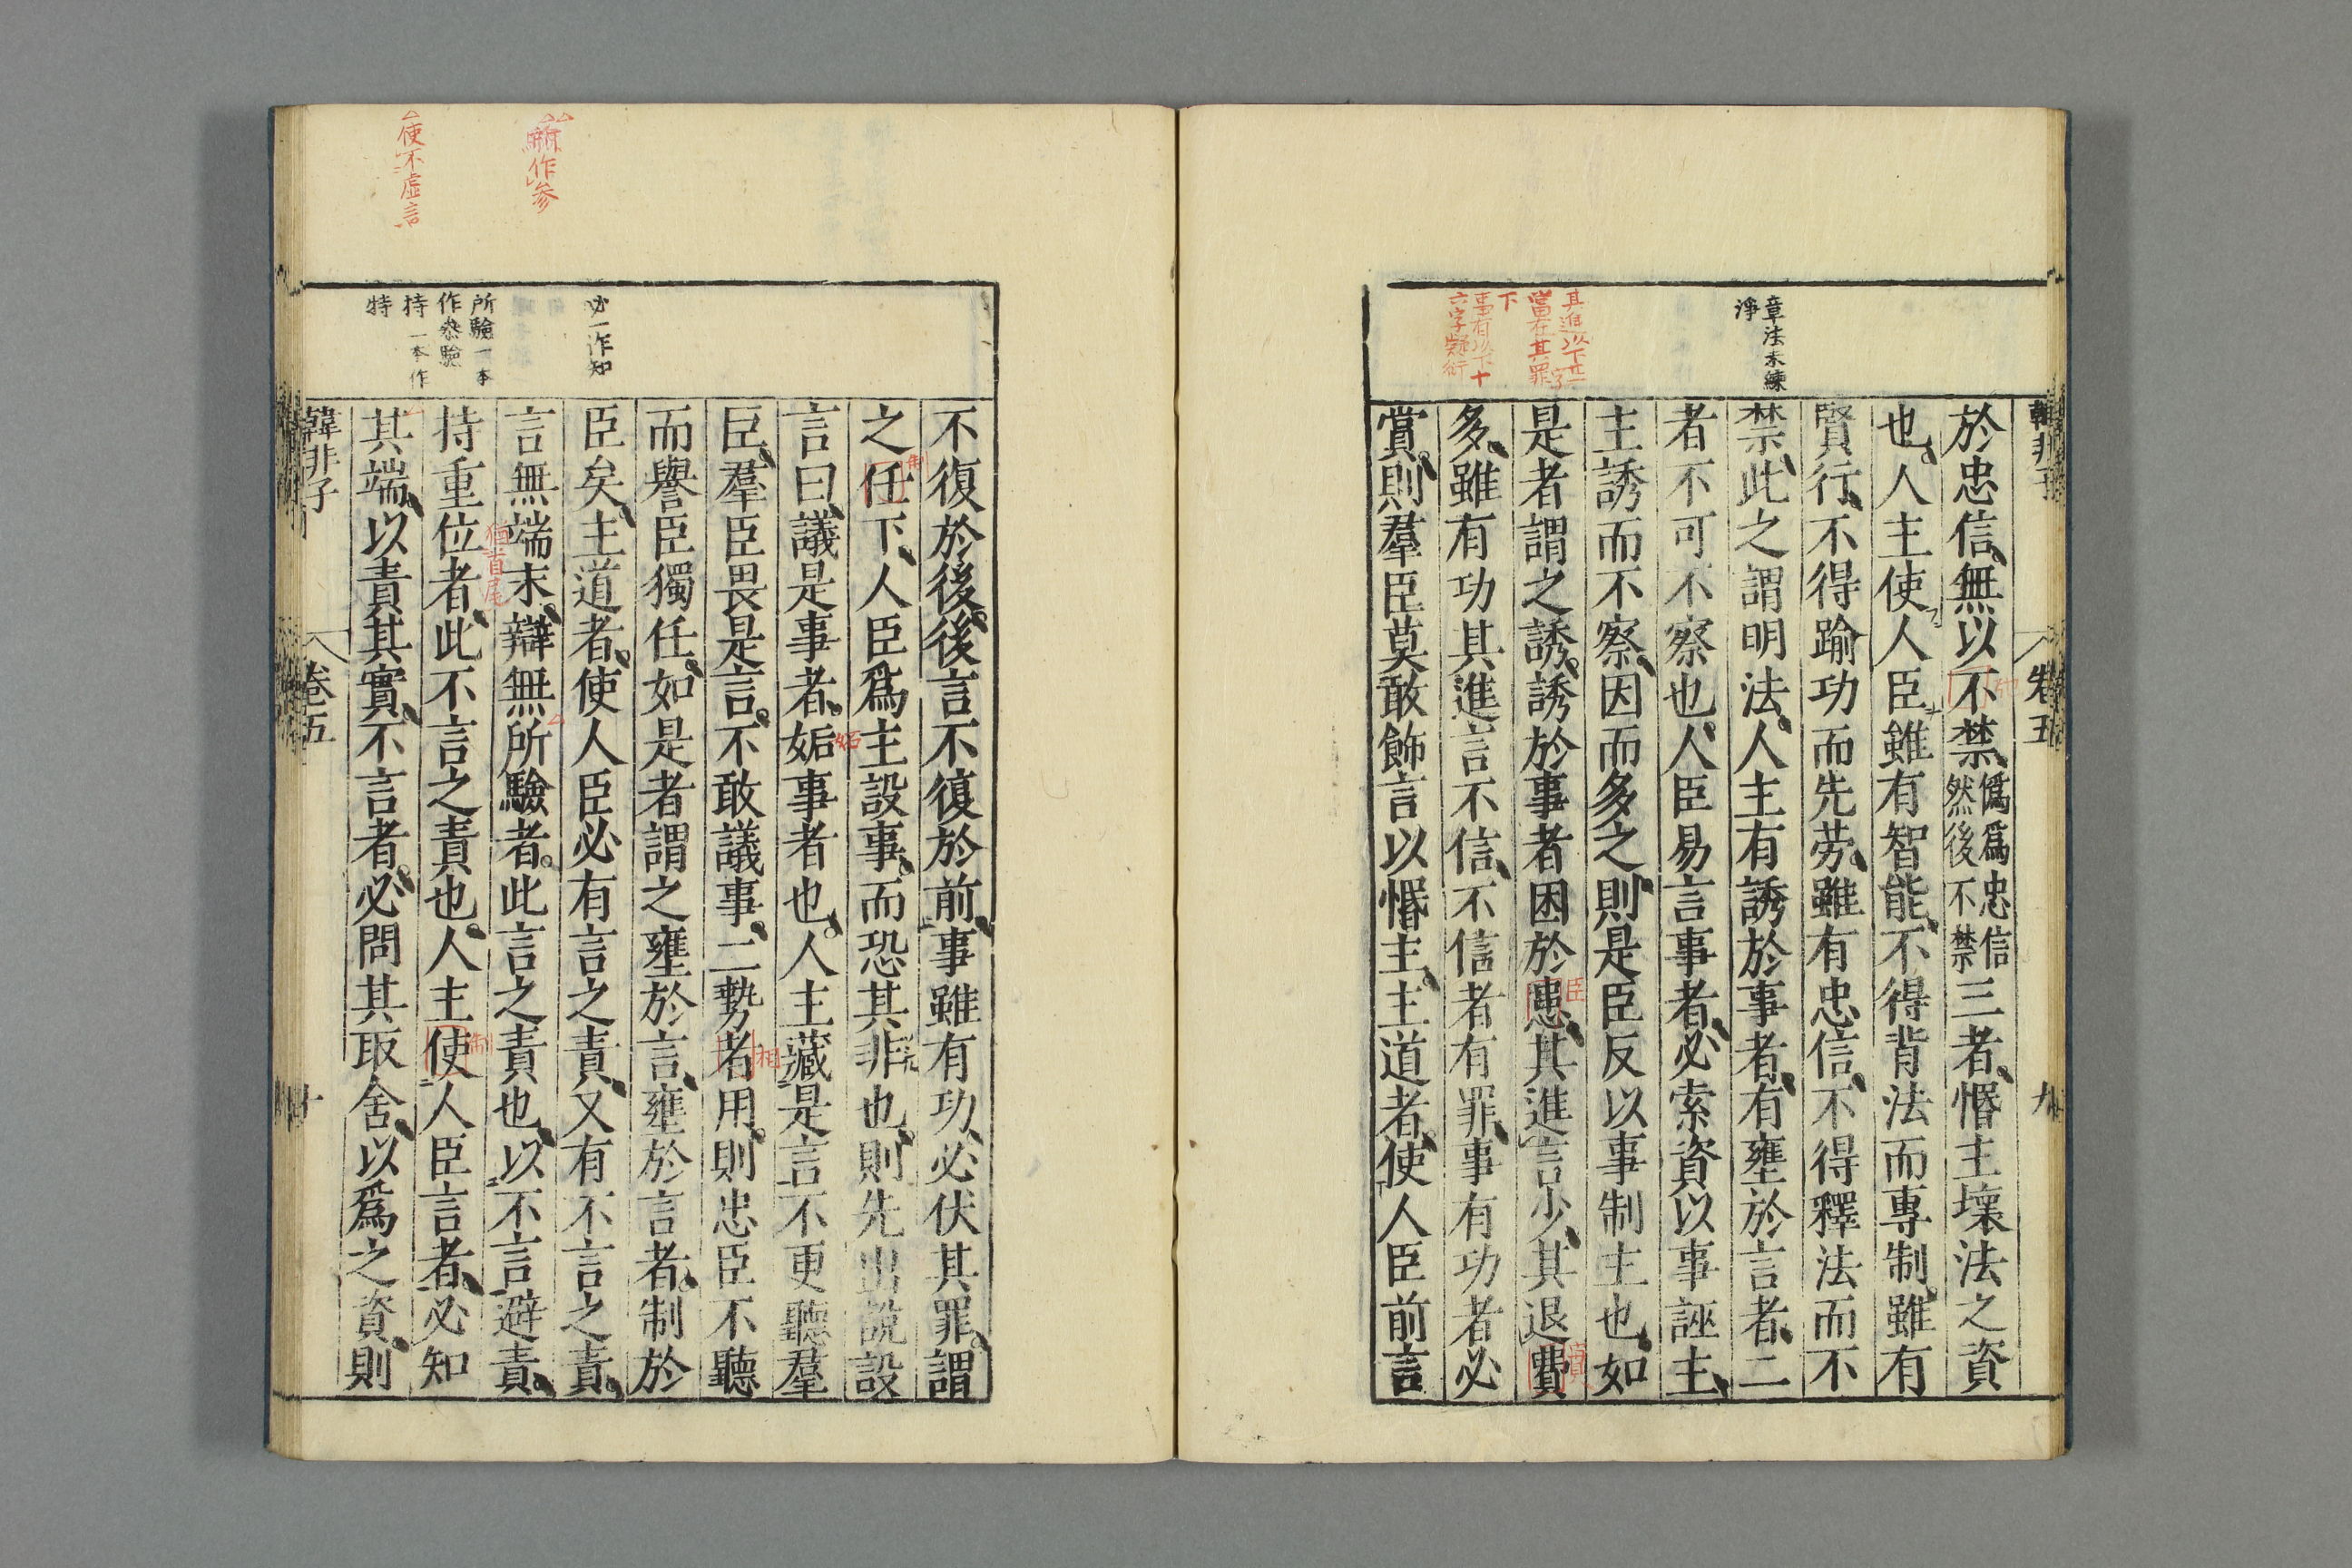 韓非子 卷五 九
章法未練
淨
其進以下廿一字
當在其罪
下
事有以下十
六字疑衍
於忠信、無以不禁、僞爲忠信然後不禁三者、惛主壞法之資
也。人主使人臣雖有智能、不得背法而專制、雖有
賢行、不得踰功而先勞、雖有忠信、不得釋法而不
禁、此之謂明法、人主有誘於事者、有壅於言者、二
者不可不察也、人臣易言事者、必索資以事誣主、
主誘而不察、因而多之、則是臣反以事制主也、如
是者謂之誘、誘於事者困於患、其進言少、其退費
多、雖有功其進言不信、不信者有罪、事有功者必
賞、則羣臣莫敢飾言以惛主、主道者、使人臣前言
臣
賈
必一作知
所驗一本
作參驗
持一本作
特
辭作參
使不虛言
不復於後。後言不復於前、事雖有功、必伏其罪。謂
之任下、人臣爲主設事、而恐其非也、則先出說設
言曰、議是事者、妬事者也、人主藏是言不更聽羣
臣、羣臣畏是言。不敢議事、二勢者用、則忠臣不聽
而譽臣獨任、如是者謂之壅於言、壅於言者、制於
臣矣、主道者、使人臣必有言之責、又有不言之責、
言無端末、辯無所驗者。此言之責也、以不言避責、
持重位者、此不言之責也、人主使人臣言者、必知
其端、以責其實、不言者、必問其取舍、以爲之資、則
制
妬
相
猶首尾
制
韓非子 卷五 十